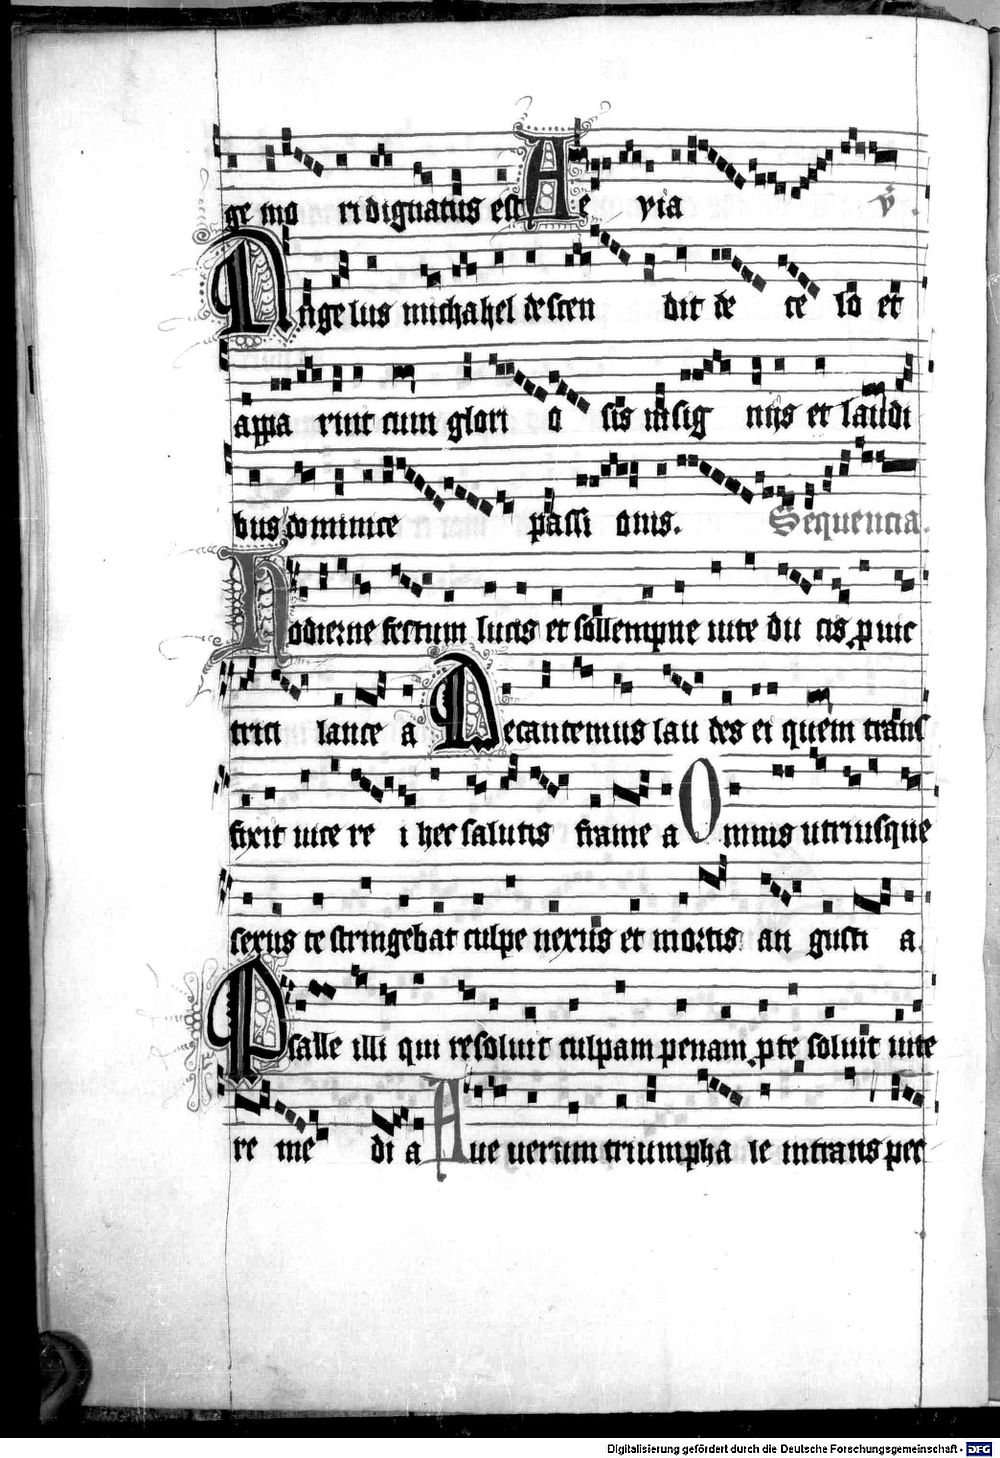 ge mo ri dignatus est Ae via v̄.
Angelus michahel descen dit de ce lo et
appa ruit cum glori o sis insig niis et laudi
bus dominice passi onis. Sequencia.
Hodierne festum lucis et sollempne uite du cis
trici lance a Decantemus lau des ei quem trans
fixit uice re i hec salutis frame a Omnis utriusque
sexus te stringebat culpe nexus et mortis an gusti a
Psalle illi qui resoluit culpam penam soluit uite
re me di a Aue uerum triumpha le intrans pec
Digitalisierung gefördert durch die Deutsche Forschungsgemeinschaft - DFG